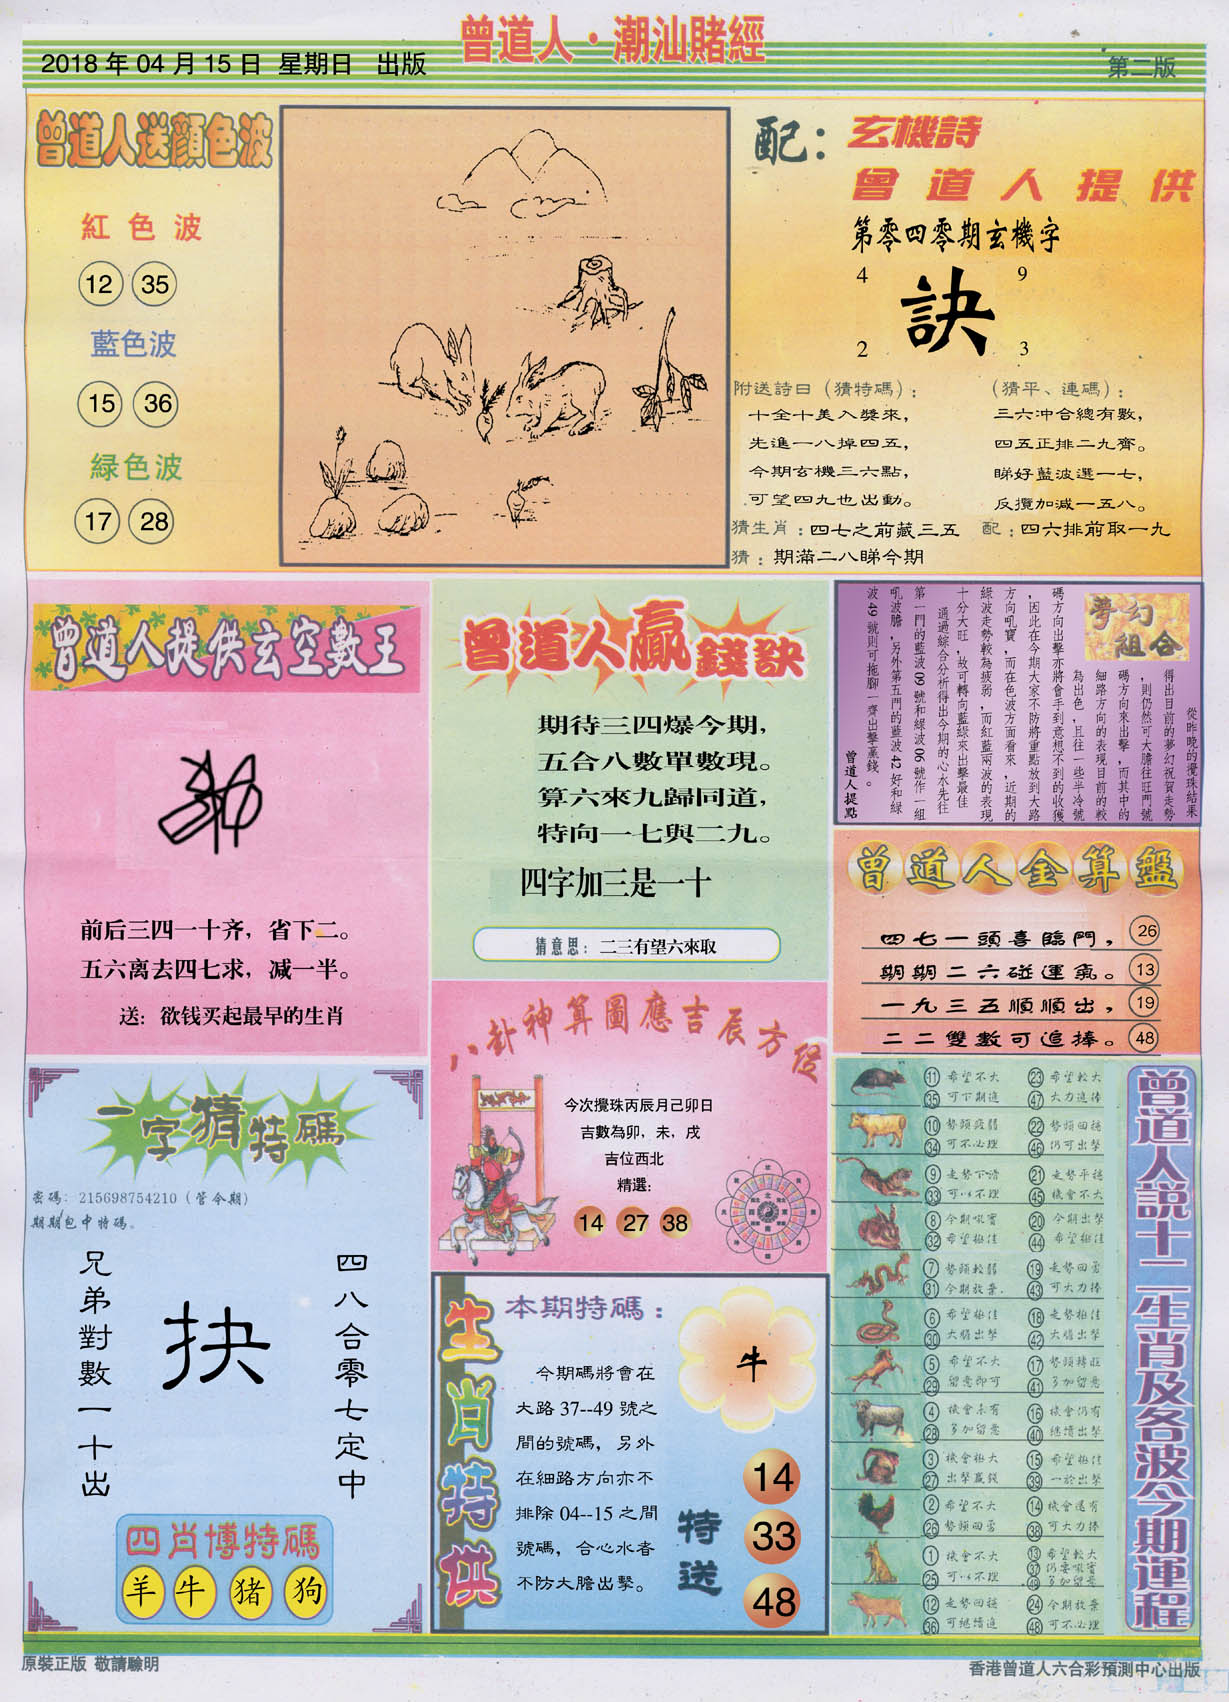 曾道人·潮汕賭經
2018 年 04 月 15 日 星期日 出版
第二版
曾道人送顏色波
紅色波
12 35
藍色波
15 36
緑色波
17 28
配：
玄機詩
曾道人提供
第零四零期玄機字
4 9
訣
2 3
附送詩曰（猜特碼）：
十全十美入獎來，
先進一八掉四五，
今期玄機三六點，
可望四九也出動。
（猜平、連碼）：
三六冲合總有數，
四五正排二九齊。
睇好藍波選一七，
反攬加減一五八。
猜生肖：四七之前藏三五
配：四六排前取一九
猜：期滿二八睇今期
曾道人提供玄空數王
前后三四一十齐，省下二。
五六离去四七求，减一半。
送：欲钱买起最早的生肖
曾道人贏錢訣
期待三四爆今期，
五合八數單數現。
算六來九歸同道，
特向一七與二九。
四字加三是一十
猜意思：二三有望六來取
夢幻
組合
從昨晚的攪珠結果
得出目前的夢幻祝賀走勢
，則仍然可大膽往旺門號
碼方向來出擊，而其中的
細路方向的表現目前的較
為出色，且往一些半冷號
碼方向出擊亦將會手到意想不到的收獲
，因此在今期大家不防將重點放到大路
方向吼寶，而在色波方面看來，近期的
綠波走勢較為疲弱，而紅藍兩波的表現
十分大旺，故可轉向藍綠來出擊最佳
通過綜合分析得出今期的心水先往
第一門的藍波 09 號和綠波 06 號作一組
吼波膽，另外第五門的藍波 42 好和綠
波 49 號則可拖腳一齊出擊贏錢。
曾道人提點
曾道人金算盤
四七一頭喜臨門， 26
期期二六碰運氣。 13
一九三五順順出， 19
二二雙數可追捧。 48
八卦神算圖應吉辰方位
今次攪珠丙辰月己卯日
吉數為卯，未，戌
吉位西北
精選：
14 27 38
一字猜特碼
密碼：215698754210（管令期）
期期包中特碼。
兄弟對數一十出
抉
四八合零七定中
四肖博特碼
羊 牛 猪 狗
生肖特供
本期特碼：
今期碼將會在
大路 37--49 號之
間的號碼，另外
在細路方向亦不
排除 04--15 之間
號碼，合心水者
不防大膽出擊。
牛
特送
14
33
48
曾道人説十二生肖及各波今期運程
11 希望不大 23 希望較大
35 可下期進 47 大力追捧
10 勢頭疲弱 22 勢頭回穩
34 可不必理 46 仍可出擊
9 走勢下滑 21 走勢平穩
33 可以不理 45 機會不大
8 今期吼寶 20 今期出擊
32 希望極佳 44 希望極佳
7 勢頭較弱 19 走勢回勇
31 今期放棄 43 可大力捧
6 希望極佳 18 走勢極佳
30 大膽出擊 42 大膽出擊
5 希望不大 17 勢頭轉旺
29 留意即可 41 多加留意
4 機會未有 16 機會仍有
28 多加留意 40 繼續出擊
3 機會極大 15 希望極佳
27 出擊贏錢 39 一於出擊
2 希望不大 14 機會還有
26 勢頭回勇 38 可大力捧
1 機會不大 13 希望較大
25 可以不理 37 仍要吼寶
49 多加留意
12 走勢回穩 24 今期放棄
36 可繼續追 48 可不必理
原裝正版 敬請驗明
香港曾道人六合彩預測中心出版